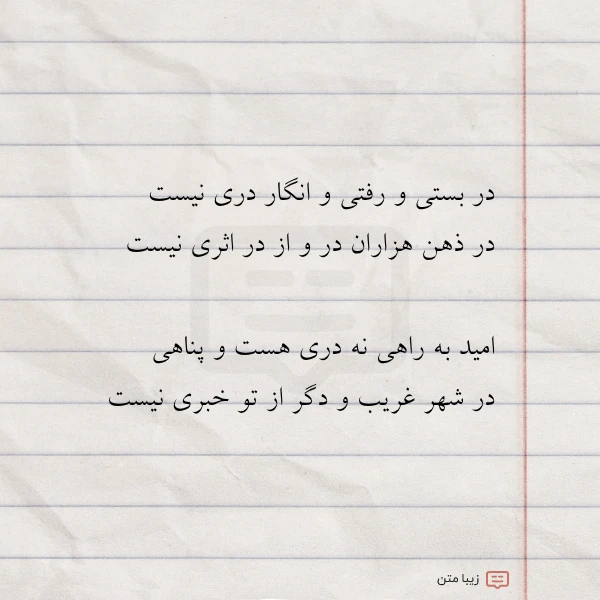 در بستی و رفتی و انگار دری نیست
در ذهن هزاران در و از در اثری نیست
امید به راهی نه دری هست و پناهی
در شهر غریب و دگر از تو خبری نیست
زیبا متن